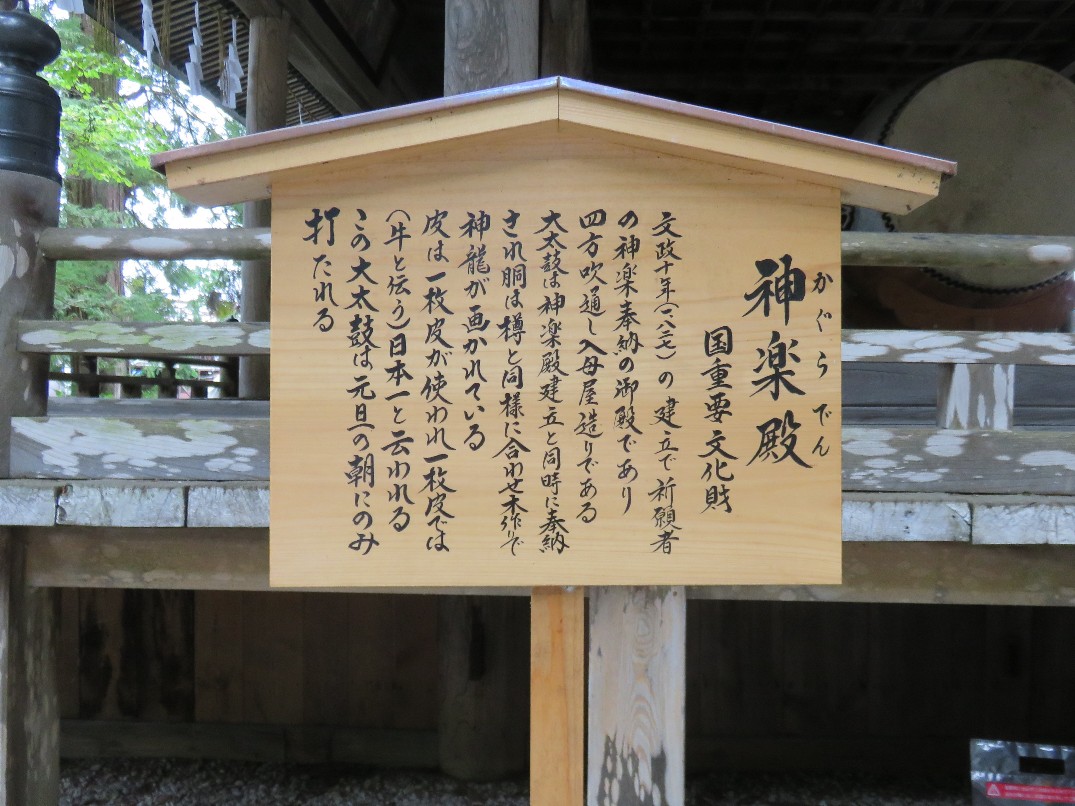 かぐらでん
神楽殿
国重要文化財
文政十年(一八二七)の建立で祈願者
の神楽奉納の御殿であり
四方吹通し入母屋造りである
大太鼓は神楽殿建立と同時に奉納
され胴は樽と同様に合わせ木作りで
神龍が画かれている
皮は一枚皮が使われ一枚皮では
(牛と伝う)日本一と云われる
この大太鼓は元旦の朝にのみ
打たれる